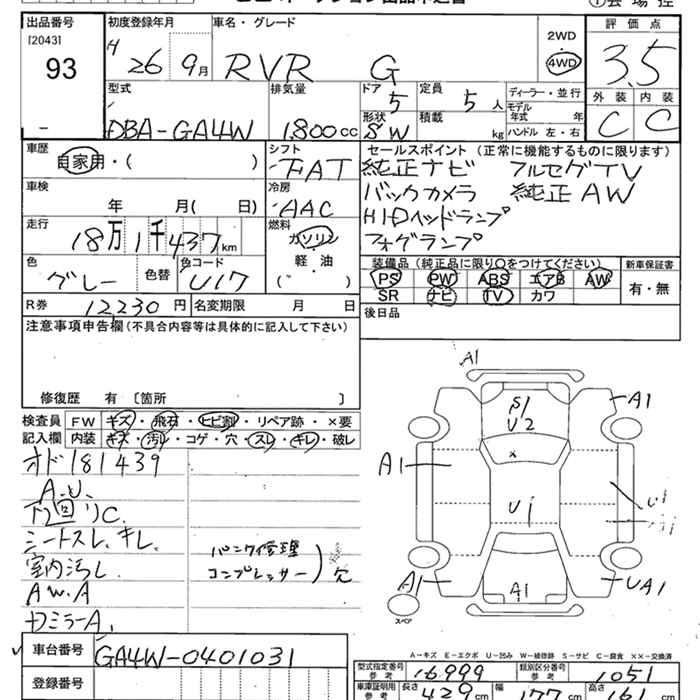 出品番号 初度登録年月 車名・グレード 2WD・4WD 評価点
[2043]
93 H 26 9月 RVR G 3.5
型式 排気量 ドア 5 定員 5人 ディーラー・並行 外装 内装
モデル年式 年
DBA-GA4W 1800cc 形状 SW 積載 kg ハンドル 左・右 C C
車歴 シフト セールスポイント (正常に機能するものに限ります)
自家用・( ) FAT 純正ナビ フルセグTV
車検 冷房 バックカメラ 純正AW
年 月( 日) AAC HIDヘッドランプ
走行 燃料 フォグランプ
18万1千437km ガソリン
色 色替 色コード 軽・油 装備品 (純正品に限り○をつけてください) 新車保証書
グレー U17 ( ) PS PW ABS エアB AW 有・無
SR ナビ TV カワ
R券 12230円 名変期限 月 日 後日品
注意事項申告欄(不具合内容等は具体的に記入して下さい)
修復歴 有 〔箇所 〕
検査員 FW キズ・飛石・ヒビ割・リペア跡・×要
記入欄 内装 キズ・汚レ・コゲ・穴・スレ・キレ・破レ
オド181439
A.U.
シートスレ、キレ、
室内汚レ
A.W.A
パンク修理
コンプレッサー)欠
A1
S1
U2
A1
A1
U1
U1
A1
A1
UA1
スペア
A-キズ E-エクボ U-凹み W-補修跡 S-サビ C-腐食 ××-交換済
車台番号 GA4W-0401031
登録番号
型式指定番号 参考 16999 類別区分番号 参考 1051
車庫証明用 参考 長さ 429cm 幅 177cm 高さ 161cm